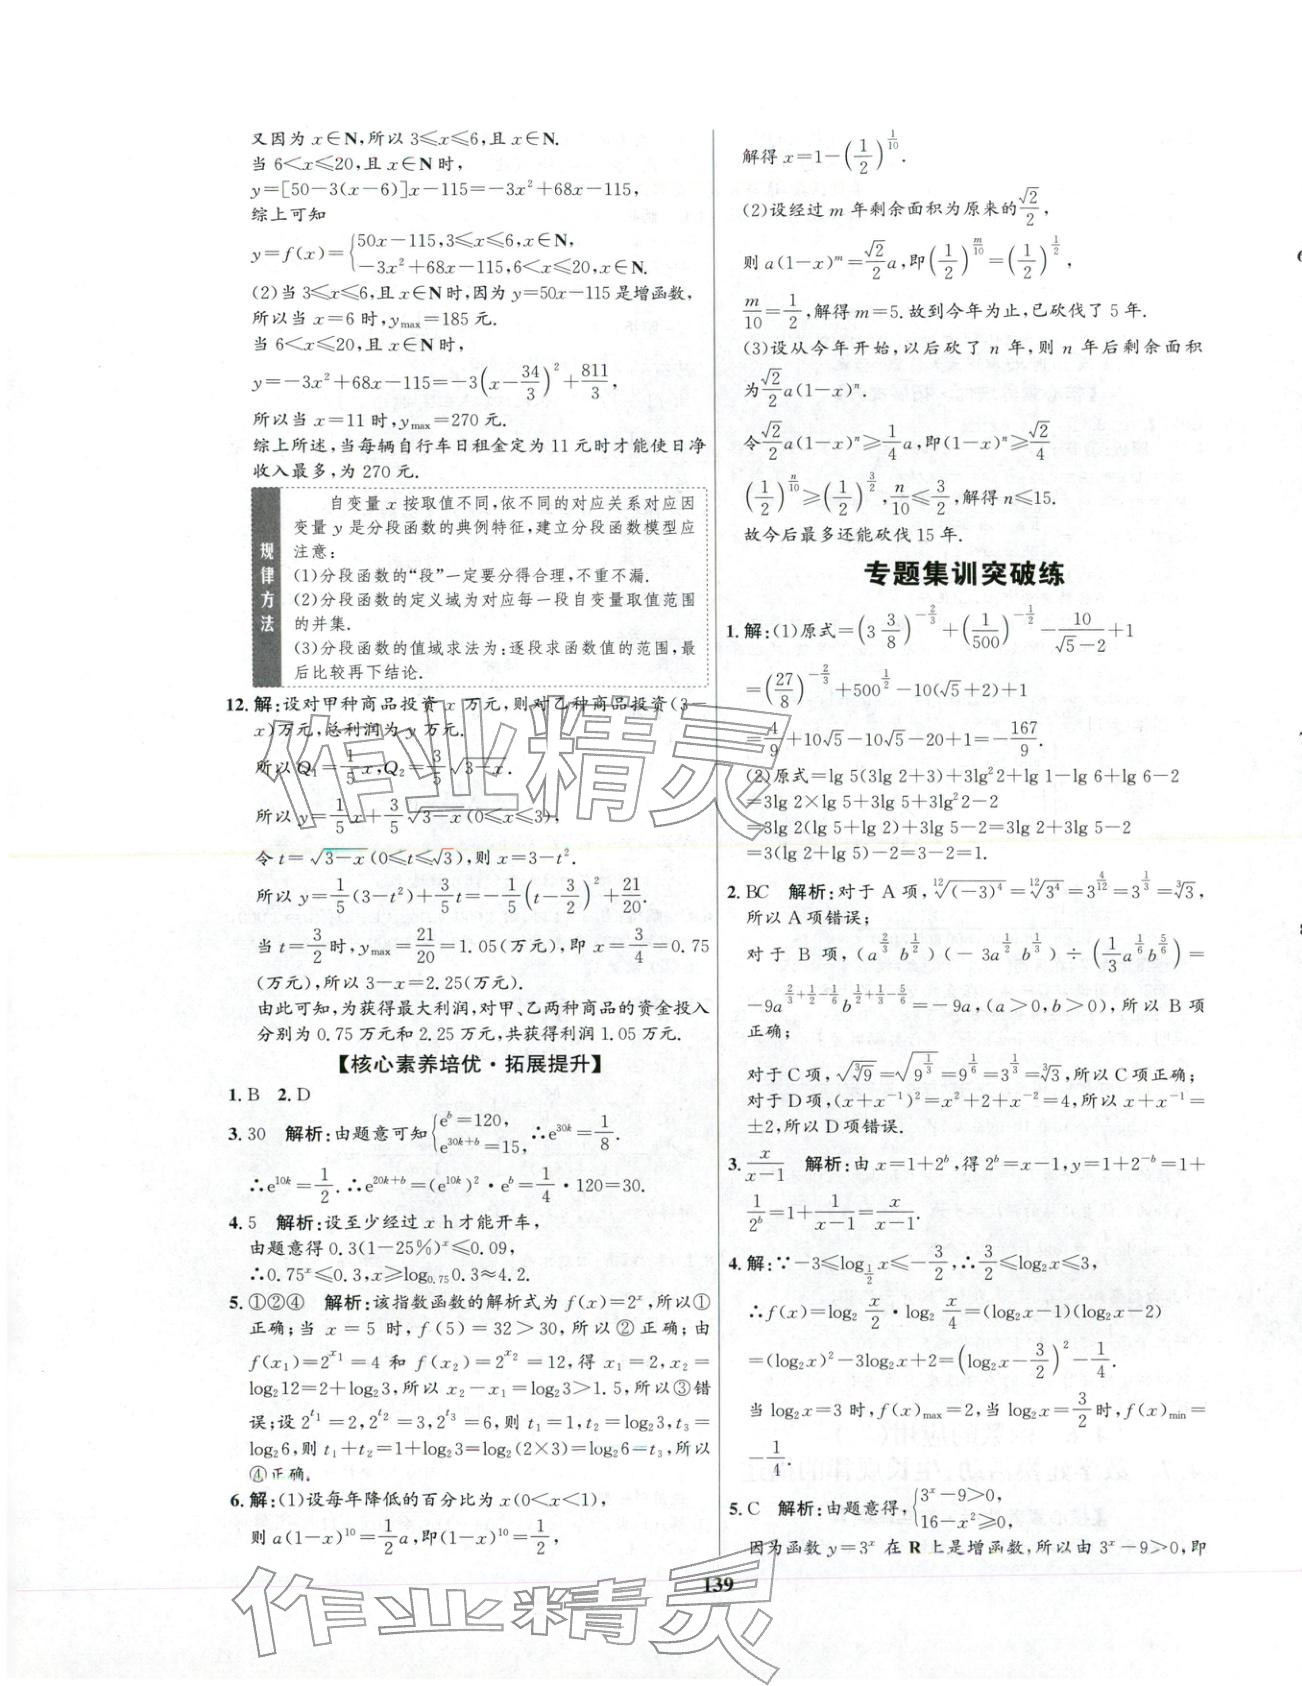 又因为 x∈N,所以 3≤x≤6,且 x∈N.
当 6<x≤20,且 x∈N 时,
y=[50-3(x-6)]x-115=-3x²+68x-115,
综上可知
y=f(x)={50x-115,3≤x≤6,x∈N,
-3x²+68x-115,6<x≤20,x∈N.
(2)当 3≤x≤6,且 x∈N 时,因为 y=50x-115 是增函数,
所以当 x=6 时,y_max=185 元.
当 6<x≤20,且 x∈N 时,
y=-3x²+68x-115=-3(x-34/3)²+811/3,
所以当 x=11 时,y_max=270 元.
综上所述,当每辆自行车日租金定为 11 元时才能使日净
收入最多,为 270 元.
规律方法
自变量 x 按取值不同,依不同的对应关系对应因
变量 y 是分段函数的典例特征,建立分段函数模型应
注意:
(1)分段函数的“段”一定要分得合理,不重不漏.
(2)分段函数的定义域为对应每一段自变量取值范围
的并集.
(3)分段函数的值域求法为:逐段求函数值的范围,最
后比较再下结论.
12.解:设对甲种商品投资 x 万元,则对乙种商品投资(3-
x)万元,总利润为 y 万元.
所以 Q₁=1/5 x,Q₂=3/5 √(3-x).
所以 y=1/5 x+3/5 √(3-x)(0≤x≤3),
令 t=√(3-x)(0≤t≤√3),则 x=3-t².
所以 y=1/5(3-t²)+3/5 t=-1/5(t-3/2)²+21/20.
当 t=3/2 时,y_max=21/20=1.05(万元),即 x=3/4=0.75
(万元),所以 3-x=2.25(万元).
由此可知,为获得最大利润,对甲、乙两种商品的资金投入
分别为 0.75 万元和 2.25 万元,共获得利润 1.05 万元.
【核心素养培优·拓展提升】
1. B 2. D
3. 30 解析:由题意可知{e^b=120,
e^(30k+b)=15, ∴e^(30k)=1/8.
∴e^(10k)=1/2. ∴e^(20k+b)=(e^(10k))²·e^b=1/4·120=30.
4. 5 解析:设至少经过 x h 才能开车,
由题意得 0.3(1-25%)^x≤0.09,
∴0.75^x≤0.3,x≥log_0.75 0.3≈4.2.
5. ①②④ 解析:该指数函数的解析式为 f(x)=2^x,所以①
正确;当 x=5 时,f(5)=32>30,所以②正确;由
f(x₁)=2^(x₁)=4 和 f(x₂)=2^(x₂)=12,得 x₁=2,x₂=
log₂12=2+log₂3,所以 x₂-x₁=log₂3>1.5,所以③错
误;设 2^(t₁)=2,2^(t₂)=3,2^(t₃)=6,则 t₁=1,t₂=log₂3,t₃=
log₂6,则 t₁+t₂=1+log₂3=log₂(2×3)=log₂6=t₃,所以
④正确.
6. 解:(1)设每年降低的百分比为 x(0<x<1),
则 a(1-x)^10=1/2 a,即(1-x)^10=1/2,
解得 x=1-(1/2)^(1/10).
(2)设经过 m 年剩余面积为原来的√2/2,
则 a(1-x)^m=√2/2 a,即(1/2)^(m/10)=(1/2)^(1/2),
m/10=1/2,解得 m=5.故到今年为止,已砍伐了 5 年.
(3)设从今年开始,以后砍了 n 年,则 n 年后剩余面积
为√2/2 a(1-x)^n.
令√2/2 a(1-x)^n≥1/4 a,即(1-x)^n≥√2/4
(1/2)^(n/10)≥(1/2)^(3/2),n/10≤3/2,解得 n≤15.
故今后最多还能砍伐 15 年.
专题集训突破练
1. 解:(1)原式=(3 3/8)^(-2/3)+(1/500)^(-1/2)-10/(√5-2)+1
=(27/8)^(-2/3)+500^(1/2)-10(√5+2)+1
=4/9+10√5-10√5-20+1=-167/9.
(2)原式=lg 5(3lg 2+3)+3lg²2+lg 1-lg 6+lg 6-2
=3lg 2×lg 5+3lg 5+3lg²2-2
=3lg 2(lg 5+lg 2)+3lg 5-2=3lg 2+3lg 5-2
=3(lg 2+lg 5)-2=3-2=1.
2. BC 解析:对于 A 项,¹²√(-3)⁴=¹²√3⁴=3^(4/12)=3^(1/3)=³√3,
所以 A 项错误;
对于 B 项,(a^(2/3)b^(1/2))(-3a^(1/2)b^(1/3))÷(1/3 a^(1/6)b^(5/6))=
-9a^(2/3+1/2-1/6)b^(1/2+1/3-5/6)=-9a,(a>0,b>0),所以 B 项
正确;
对于 C 项,√(³√9)=√(9^(1/3))=9^(1/6)=3^(1/3)=³√3,所以 C 项正确;
对于 D 项,(x+x⁻¹)²=x²+2+x⁻²=4,所以 x+x⁻¹=
±2,所以 D 项错误.
3. x/(x-1) 解析:由 x=1+2^b,得 2^b=x-1,y=1+2^(-b)=1+
1/2^b=1+1/(x-1)=x/(x-1).
4. 解:∵-3≤log_(1/2) x≤-3/2,∴3/2≤log₂x≤3,
∴f(x)=log₂ x/2·log₂ x/4=(log₂x-1)(log₂x-2)
=(log₂x)²-3log₂x+2=(log₂x-3/2)²-1/4.
当 log₂x=3 时,f(x)_max=2,当 log₂x=3/2 时,f(x)_min=
-1/4.
5. C 解析:由题意得,{3^x-9>0,
16-x²≥0,
因为函数 y=3^x 在 R 上是增函数,所以由 3^x-9>0,即
139
作业精灵
作业精灵